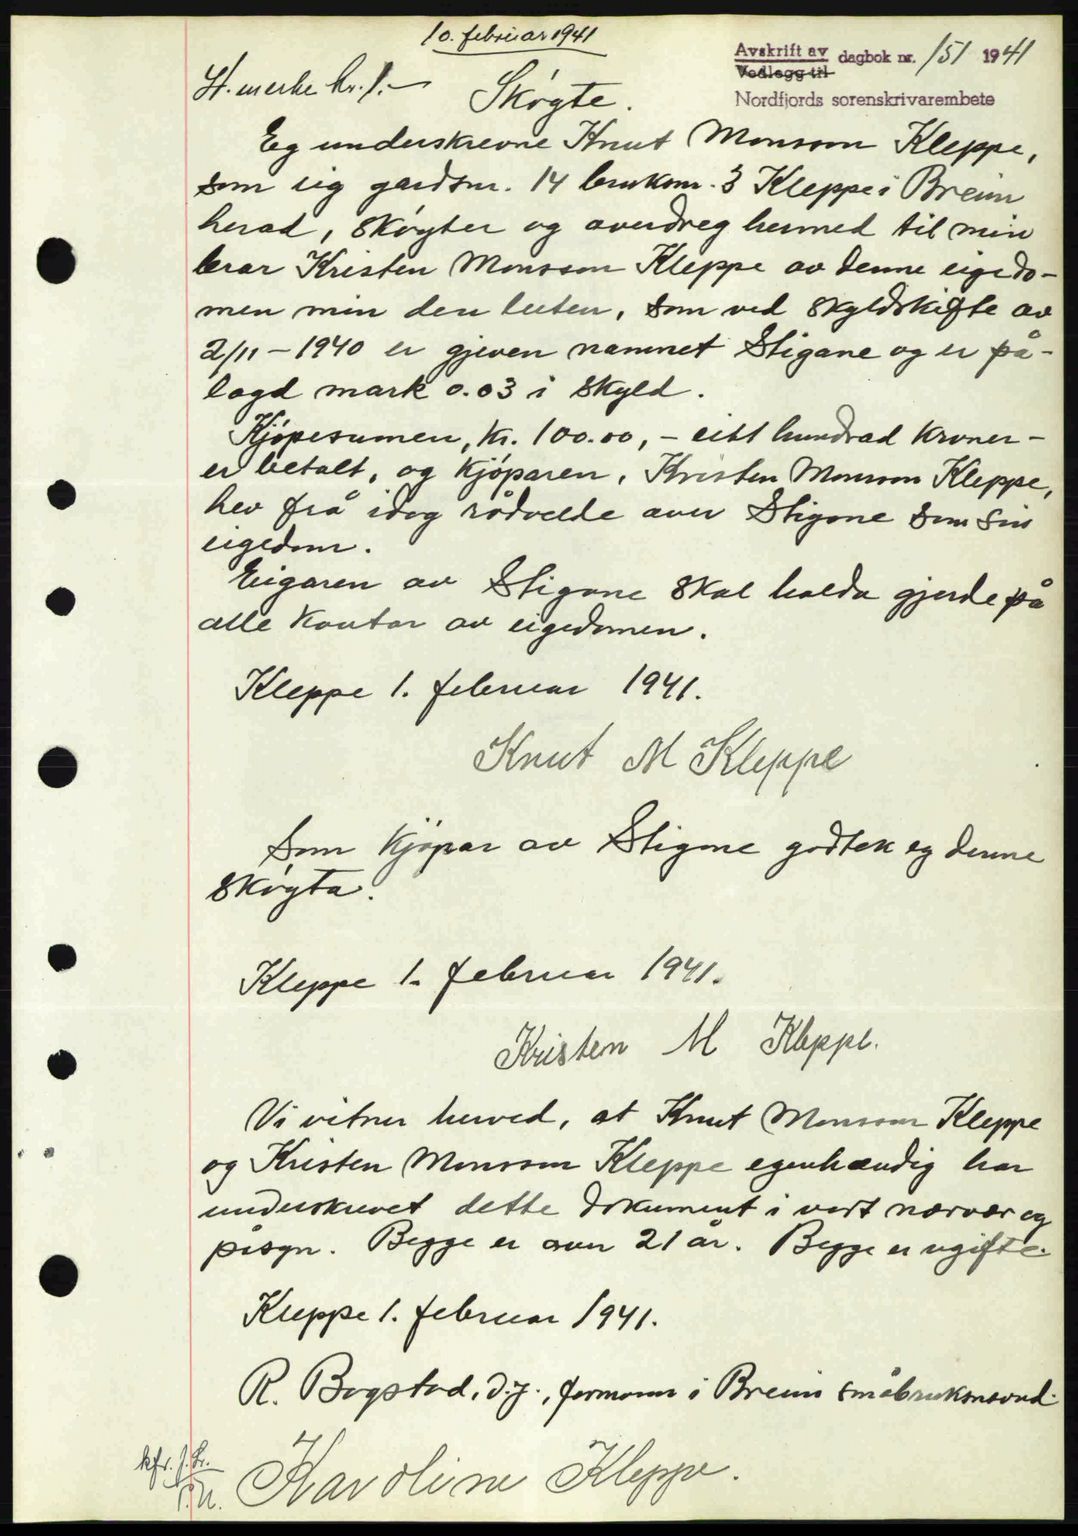 10. februar 1941
Avskrift av dagbok nr. 151 1941
Vedlegg til
Nordfjords sorenskrivarembete
St. merke kr. 1.-
Skøyte.
Eg underskrevne Knut Monsson Kleppe,
som eig gardsnr. 14 bruksnr. 3 Kleppe i Breim
herad, skøyter og averdreg hermed til min
brør Kristen Monsson Kleppe av denne eigedo-
men min den luten, som ved skyldskifte av
2/11 - 1940 er gjeven namnet Stigane og er på-
lagd mark 0.03 i skyld.
Kjøpesumen, kr. 100.00, - eitt hundrad kroner -
er betalt, og kjøparen, Kristen Monsson Kleppe,
hev frå idag rådvelde aver Stigane som sin
eigedom.
Eigaren av Stigane skal halda gjerde på
alle kantar av eigedomen.
Kleppe 1. februar 1941.
Knut M Kleppe
Som kjøpar av Stigane godtek eg denne
skøyta.
Kleppe 1. februar 1941.
Kristen M Kleppe.
Vi vitner herved, at Knut Monsson Kleppe
og Kristen Monsson Kleppe egenhændig har
underskrevet dette dokument i vort nærvær og
påsyn. Begge er over 21 år. Begge er ugifte.
Kleppe 1. februar 1941.
R. Bogstad, d.y., formann i Breim småbruksnevnd.
Karoline Kleppe.
kfr.